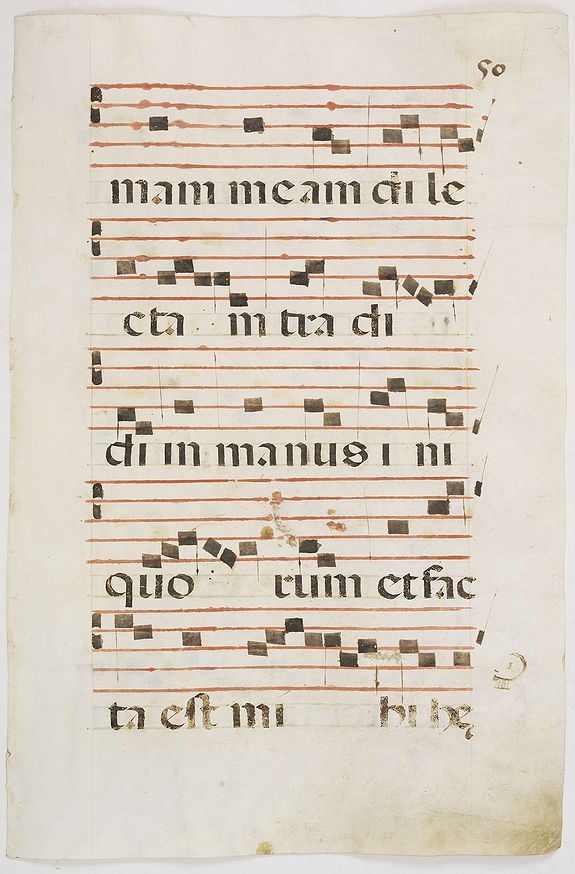 50
mam meam di le
cta m tra di
di in manus i ni
quo rum et fac
ta est mi hi he